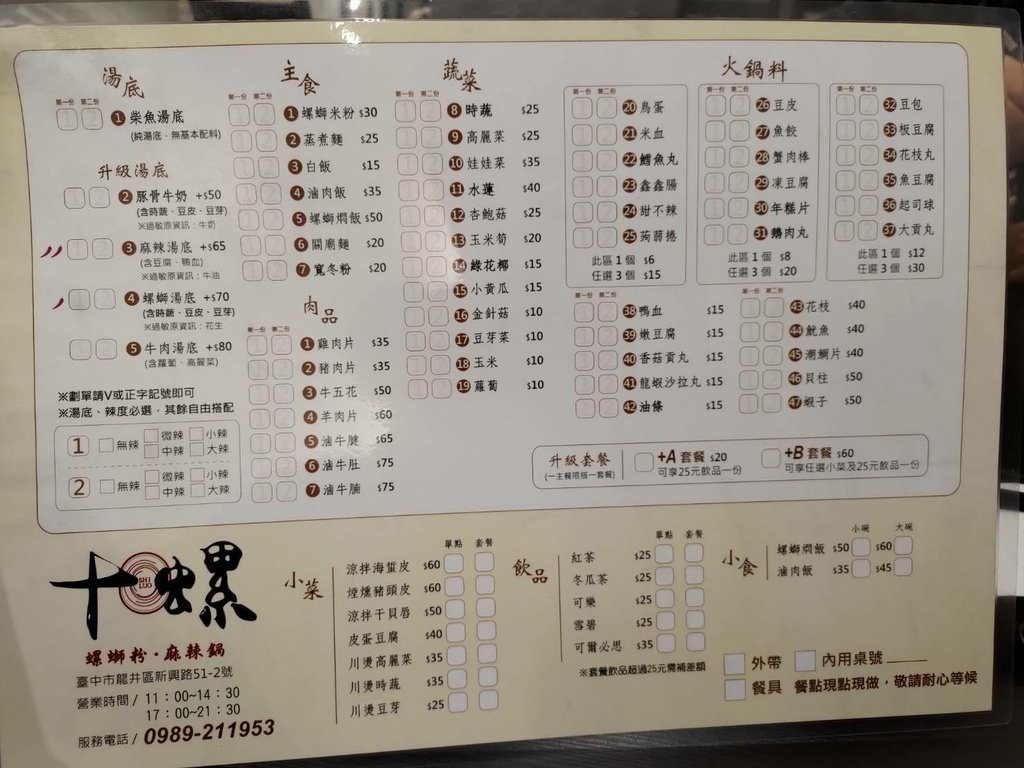 湯底
第一份 第二份
1 柴魚湯底
(純湯底,無基本配料)
升級湯底
2 豚骨牛奶 +$50
(含時蔬、豆皮、豆芽)
※過敏原資訊:牛奶
3 麻辣湯底 +$65
(含豆腐、鴨血)
※過敏原資訊:牛油
4 螺螄湯底 +$70
(含時蔬、豆皮、豆芽)
※過敏原資訊:花生
5 牛肉湯底 +$80
(含蘿蔔、高麗菜)
※劃單請V或正字記號即可
※湯底、辣度必選,其餘自由搭配
1 無辣 微辣 小辣
中辣 大辣
2 無辣 微辣 小辣
中辣 大辣
主食
第一份 第二份
1 螺螄米粉 $30
2 蒸煮麵 $25
3 白飯 $15
4 滷肉飯 $35
5 螺螄燜飯 $50
6 關廟麵 $20
7 寬冬粉 $20
肉品
第一份 第二份
1 雞肉片 $35
2 豬肉片 $35
3 牛五花 $50
4 羊肉片 $60
5 滷牛腱 $65
6 滷牛肚 $75
7 滷牛腩 $75
蔬菜
第一份 第二份
8 時蔬 $25
9 高麗菜 $25
10 娃娃菜 $35
11 水蓮 $40
12 杏鮑菇 $25
13 玉米筍 $20
14 綠花椰 $15
15 小黃瓜 $15
16 金針菇 $10
17 豆芽菜 $10
18 玉米 $10
19 蘿蔔 $10
火鍋料
第一份 第二份
20 鳥蛋
21 米血
22 鱈魚丸
23 鑫鑫腸
24 甜不辣
25 蒟蒻捲
此區1個 $6
任選3個 $15
第一份 第二份
26 豆皮
27 魚餃
28 蟹肉棒
29 凍豆腐
30 年糕片
31 鵝肉丸
此區1個 $8
任選3個 $20
第一份 第二份
32 豆包
33 板豆腐
34 花枝丸
35 魚豆腐
36 起司球
37 大貢丸
此區1個 $12
任選3個 $30
第一份 第二份
38 鴨血 $15
39 嫩豆腐 $15
40 香菇貢丸 $15
41 龍蝦沙拉丸 $15
42 油條 $15
第一份 第二份
43 花枝 $40
44 魷魚 $40
45 潮鯛片 $40
46 貝柱 $50
47 蝦子 $50
升級套餐
(一主餐限搭一套餐)
+A 套餐 $20
可享25元飲品一份
+B 套餐 $60
可享任選小菜及25元飲品一份
十螺
SHI LUO
螺螄粉·麻辣鍋
臺中市龍井區新興路51-2號
營業時間 / 11:00~14:30
17:00~21:30
服務電話 / 0989-211953
小菜
單點 套餐
涼拌海蜇皮 $60
煙燻豬頭皮 $60
涼拌干貝唇 $50
皮蛋豆腐 $40
川燙高麗菜 $35
川燙時蔬 $35
川燙豆芽 $25
飲品
單點 套餐
紅茶 $25
冬瓜茶 $25
可樂 $25
雪碧 $25
可爾必思 $35
※套餐飲品超過25元需補差額
小食
小碗 大碗
螺螄燜飯 $50 $60
滷肉飯 $35 $45
外帶 內用桌號
餐具 餐點現點現做,敬請耐心等候